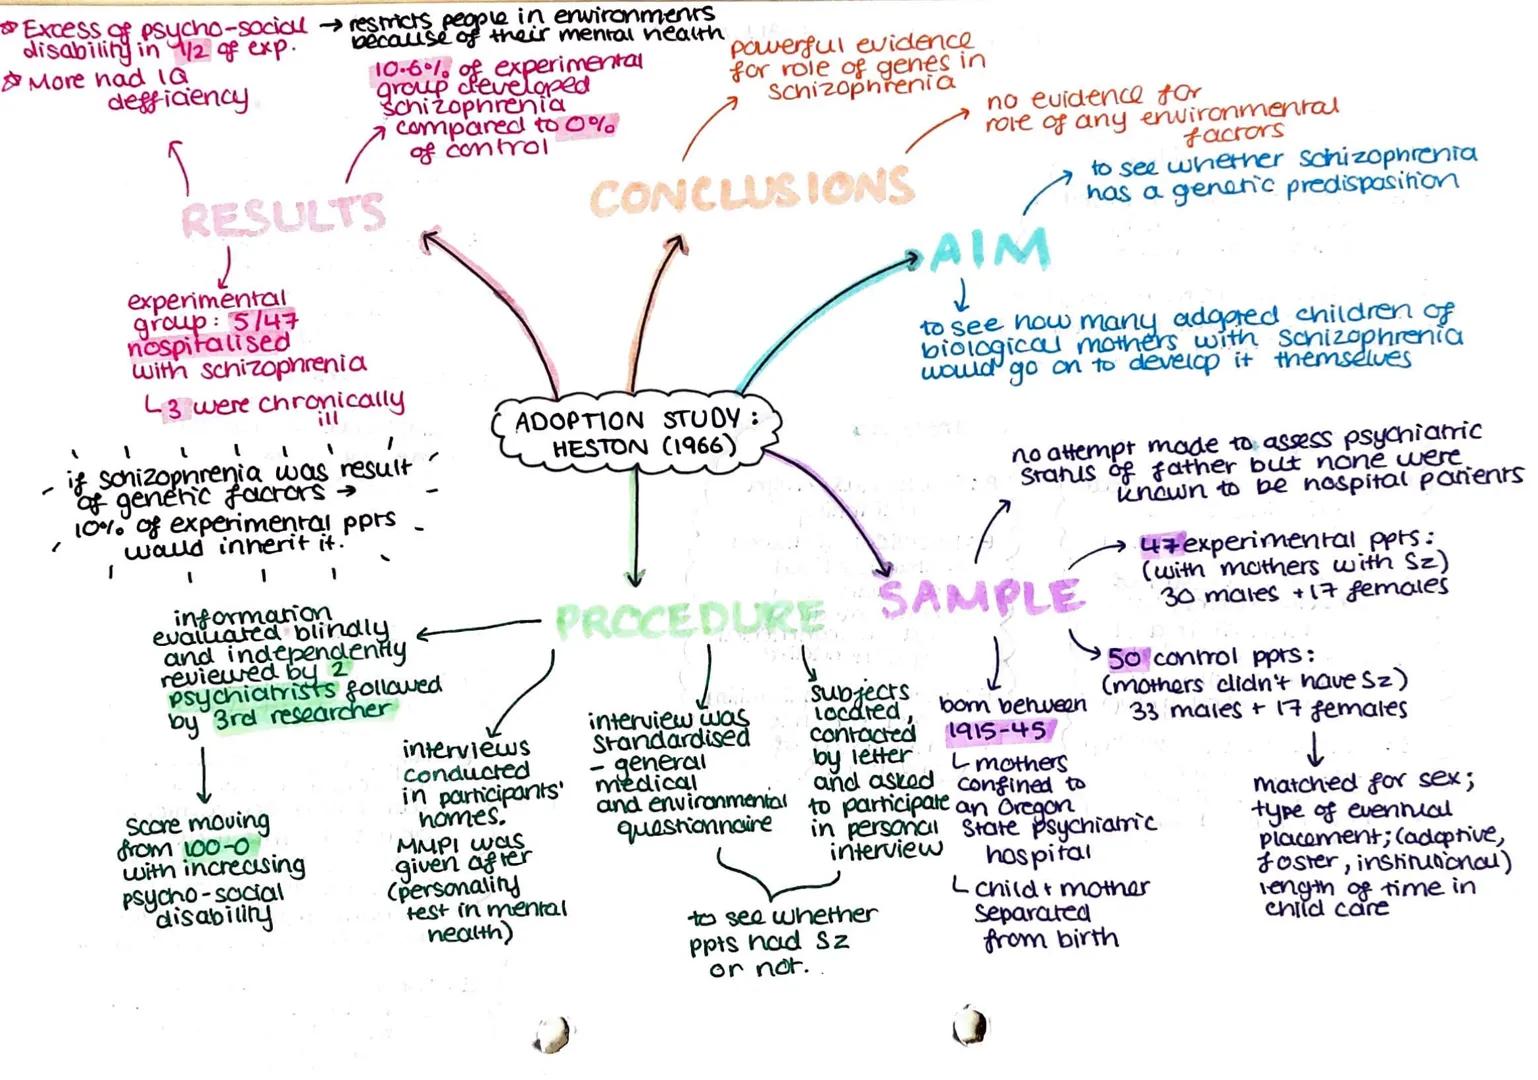 ☆ Excess of psycho-social
disability in 1/2 of exp.
→ restricts people in environments
because of their mental health
☆ More had IQ
defficiency
10.6% of experimental
group developed
schizophrenia
compared to 0%
of control
RESULTS
experimental
group: 5/47
hospitalised
with schizophrenia
↳ 3 were chronically
ill
if schizophrenia was result
of genetic factors →
10% of experimental ppts
would inherit it.
CONCLUSIONS
powerful evidence
for role of genes in
schizophrenia
no evidence for
role of any environmental
factors
AIM
to see whether schizophrenia
has a genetic predisposition
to see how many adopted children of
biological mothers with schizophrenia
would go on to develop it themselves
ADOPTION STUDY:
HESTON (1966)
SAMPLE
no attempt made to assess psychiatric
status of father but none were
known to be hospital patients
47 experimental ppts:
(with mothers with Sz)
30 males + 17 females
50 control ppts:
(mothers didn't have Sz)
33 males + 17 females
matched for sex;
type of eventual
placement; (adoptive,
foster, institutional)
length of time in
child care
born between
1915-45
↳ mothers
confined to
an Oregon
State psychiatric
hospital
↳ child + mother
separated
from birth
PROCEDURE
information
evaluated blindly
and independently
reviewed by 2
psychiatrists followed
by 3rd researcher
score moving
from 100-0
with increasing
psycho-social
disability
interviews
conducted
in participants'
homes.
MMPI was
given after
(personality
test in mental
health)
interview was
standardised
- general
medical
and environmental
questionnaire
subjects
located,
contacted
by letter
and asked
to participate
in personal
interview
to see whether
ppts had Sz
or not.